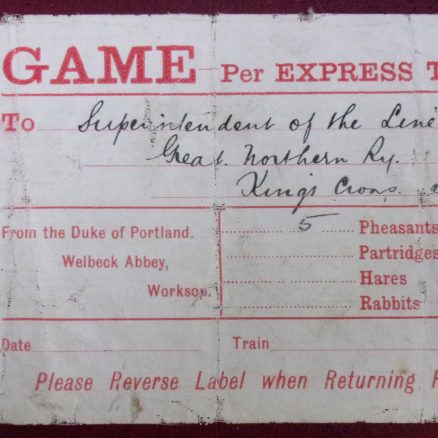 GAME Per EXPRESS T
To Superintendent of the Line
Great Northern Ry.
King's Cross
From the Duke of Portland.
Welbeck Abbey,
Worksop.
5 Pheasants
Partridges
Hares
Rabbits
Date
Train
Please Reverse Label when Returning H